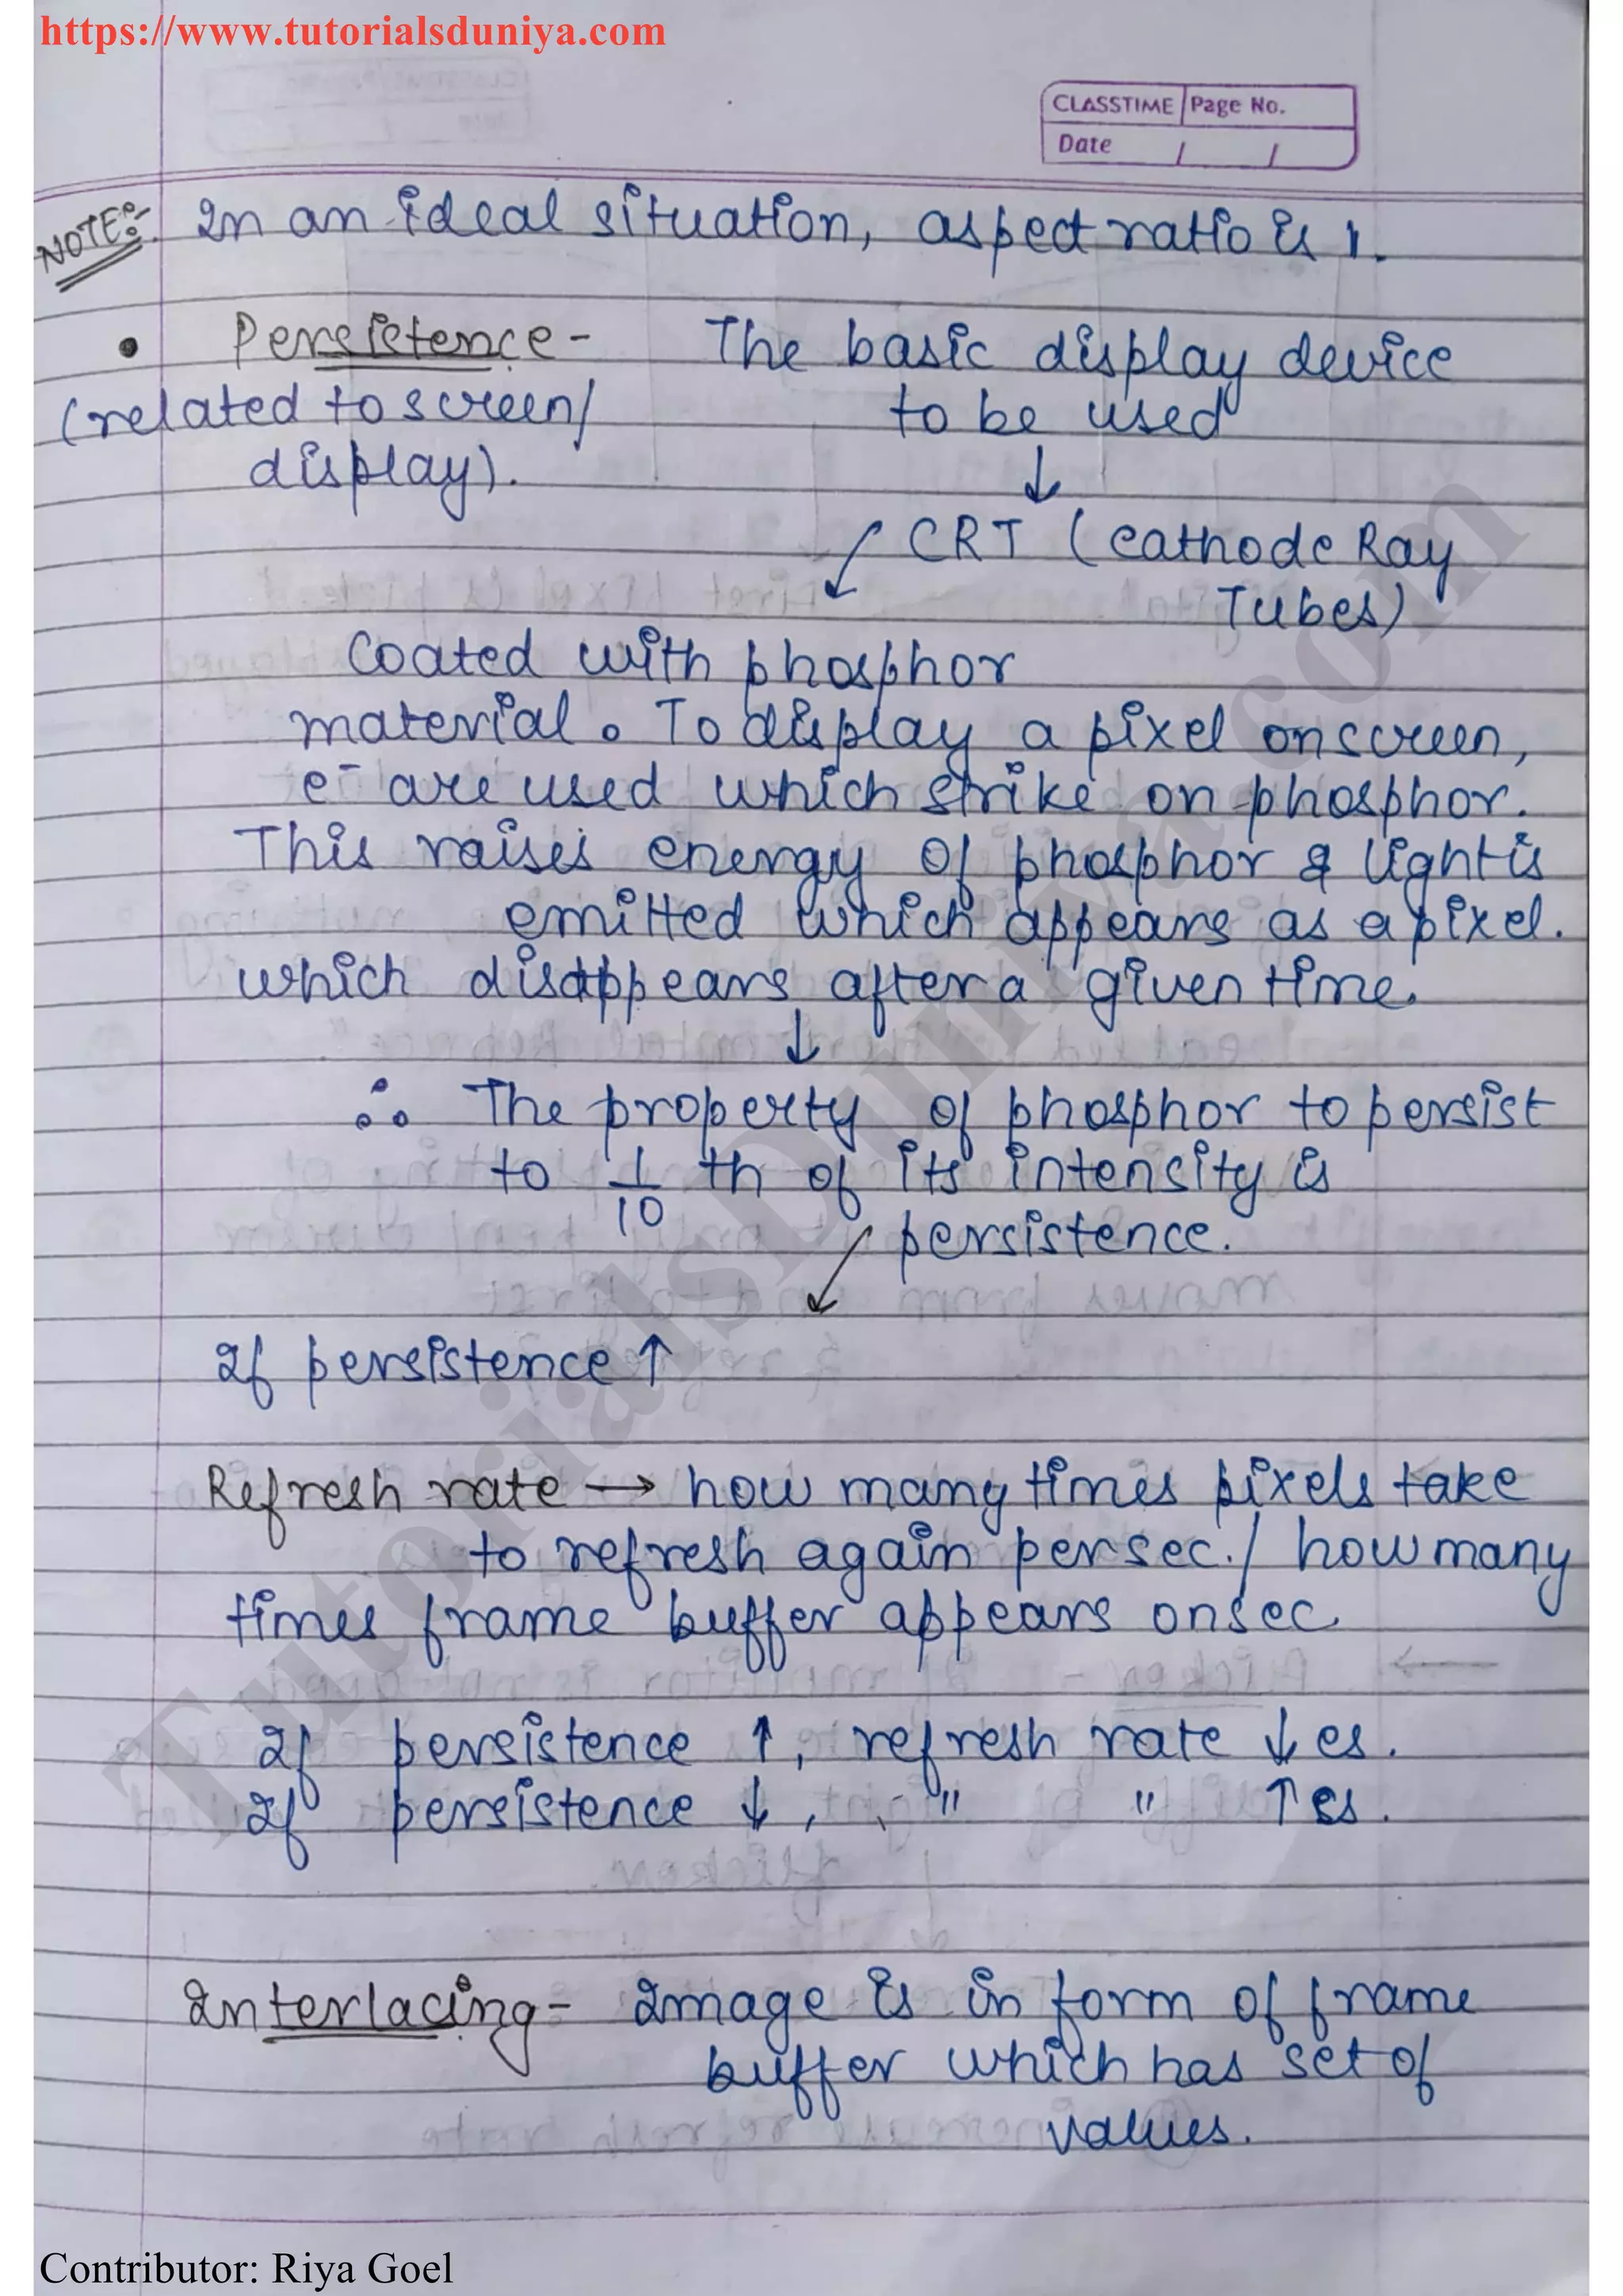 https://www.tutorialsduniya.com
CLASSTIME Page No.
Date / /
NOTE:- In an ideal situation, aspect ratio is 1.
• Persistence - The basic display device
(related to screen/ to be used
display). ↓
CRT (Cathode Ray
Tubes)
Coated with phosphor
material. To display a pixel on screen,
e⁻ are used which strike on phosphor.
This raises energy of phosphor & light is
emitted which appears as a pixel.
which disappears after a given time.
↓
∴ The property of phosphor to persist
to 1/10 th of its intensity is
persistence.
If persistence ↑
Refresh rate → how many times pixels take
to refresh again per sec. / how many
times frame buffer appears on sec
If persistence ↑, refresh rate ↓es.
If persistence ↓, " " ↑es.
Interlacing - Image is in form of frame
buffer which has set of
values.
TutorialsDuniya.com
Contributor: Riya Goel